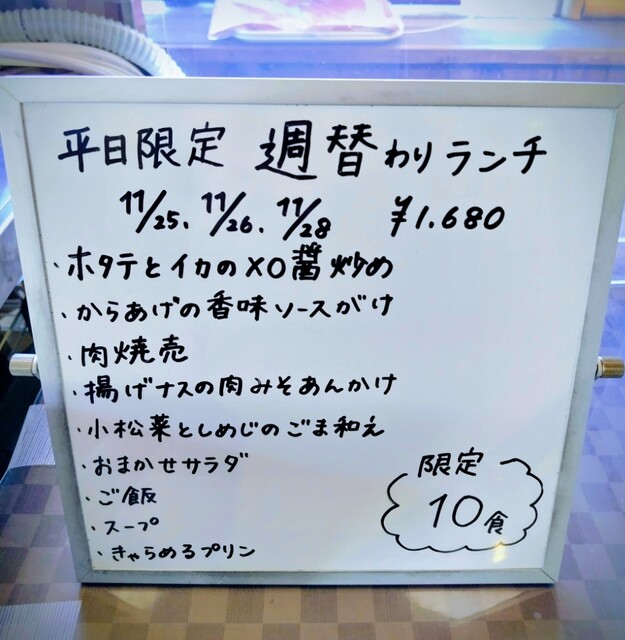 平日限定 週替わりランチ
11/25、11/26、11/28 ¥1.680
・ホタテとイカのXO醤炒め
・からあげの香味ソースがけ
・肉焼売
・揚げナスの肉みそあんかけ
・小松菜としめじのごま和え
・おまかせサラダ
・ご飯
・スープ
・きゃらめるプリン
限定
10食